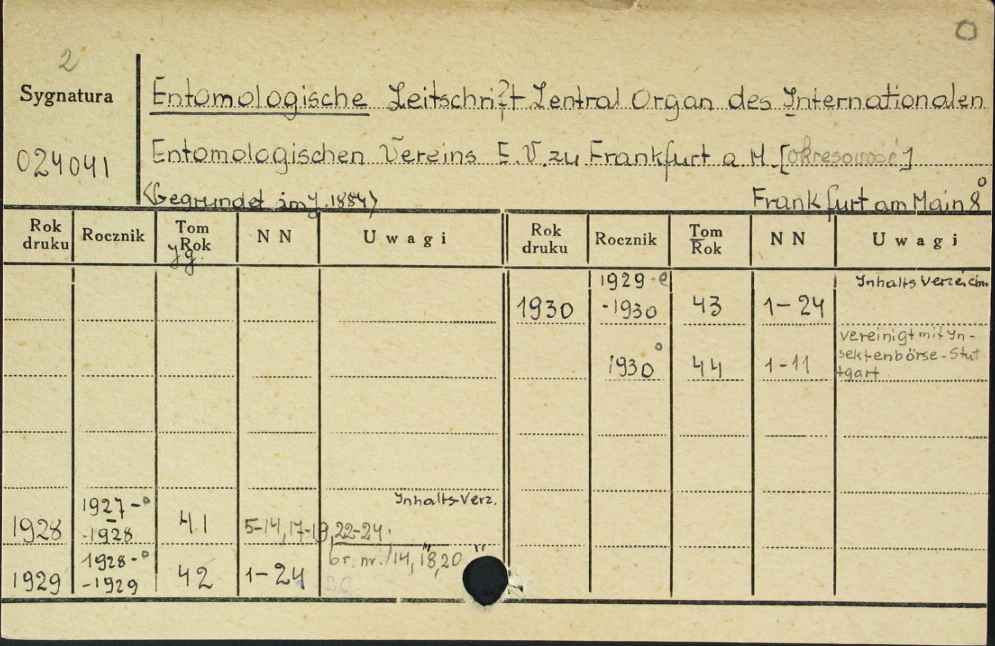 2
Sygnatura
024041
Entomologische Zeitschrift Zentral Organ des Internationalen
Entomologischen Vereins E.V. zu Frankfurt a M.
<Gegrundet im J. 1884> Frankfurt am Main 8°
Rok druku Rocznik Tom Rok Jg. NN Uwagi Rok druku Rocznik Tom Rok NN Uwagi
1930 1929-e -1930 43 1-24 Inhalts Verzeichn.
1930° 44 1-11 vereinigt mit In-
sektenbörse-Stut
tgart
1928 1927-° -1928 41 5-14, 17-19, 22-24. Inhalts-Verz.
1929 1928-° -1929 42 1-24 br. nr. 14, 18, 20